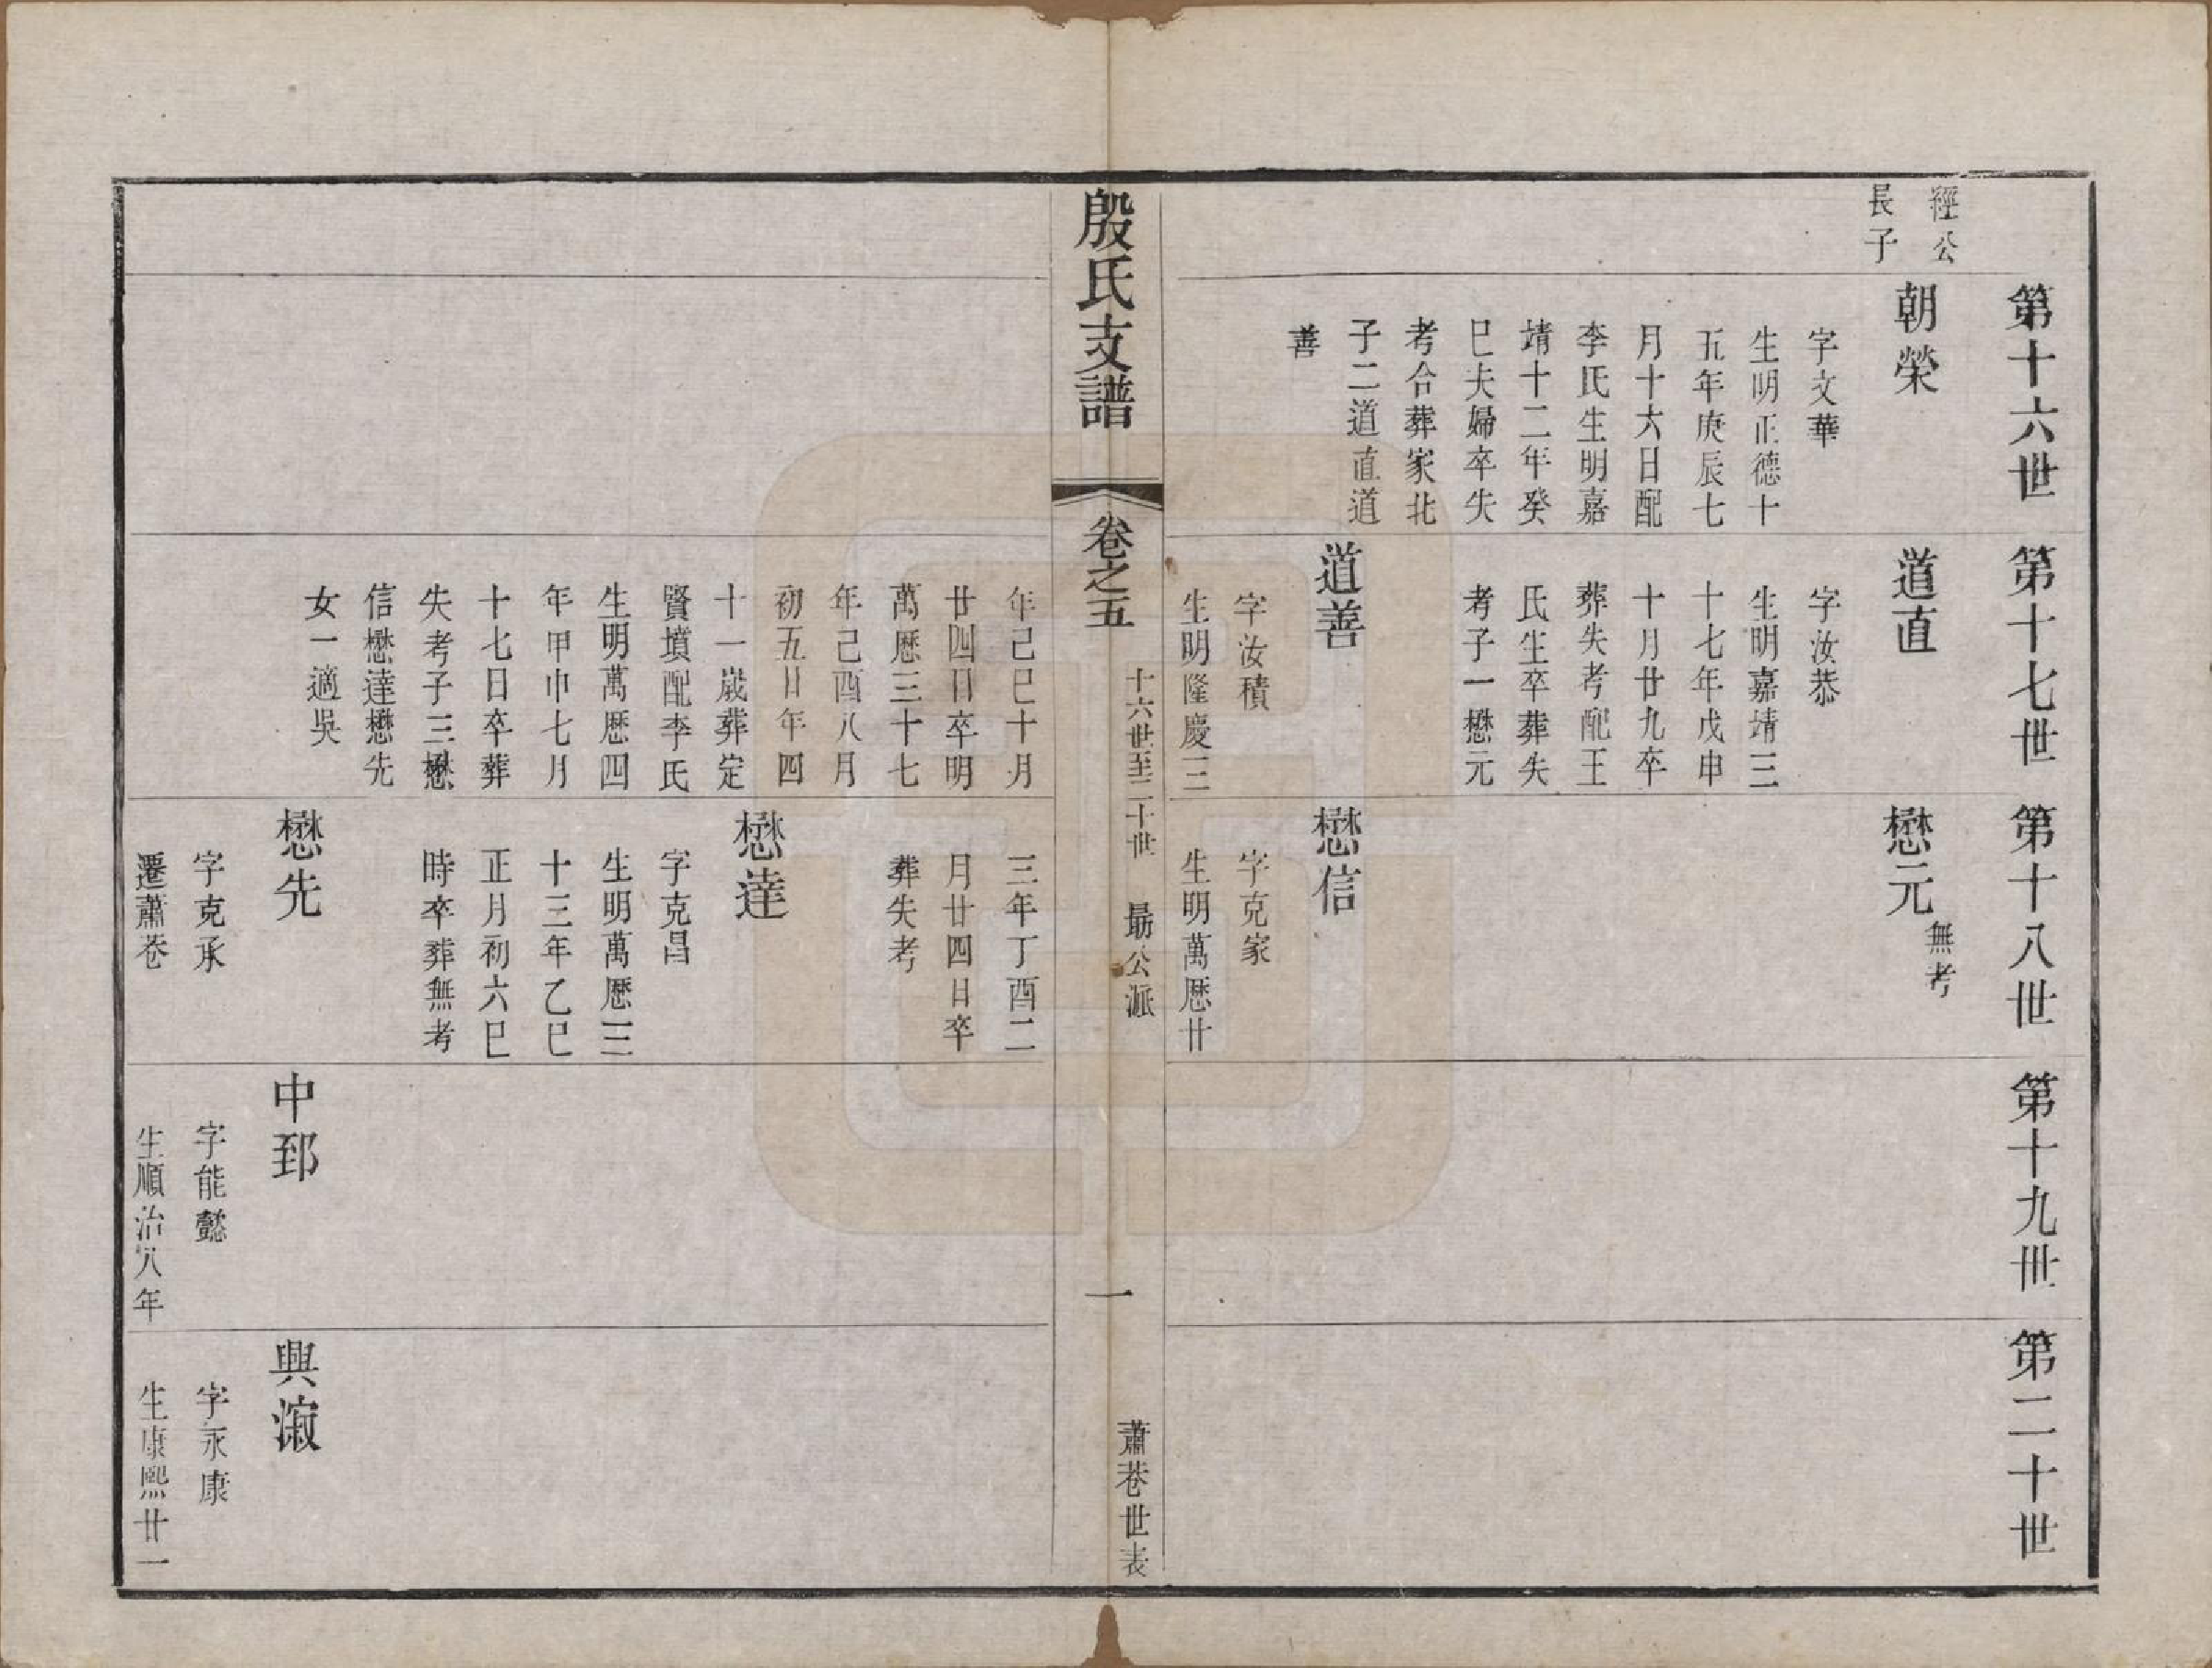 徑公
長子
第十六世
朝榮
字文華
生明正德十
五年庚辰七
月十六日配
李氏生明嘉
靖十二年癸
巳夫婦卒失
考合葬家北
子二道直道
善
第十七世
道直
字汝恭
生明嘉靖三
十七年戊申
十月廿九卒
葬失考配王
氏生卒葬失
考子一懋元
道善
字汝積
生明隆慶三
第十八世
懋元
無考
懋信
字克家
生明萬厯廿
第十九世
第二十世
殷氏支譜
卷之五
十六世至二十世
最公派
一
蕭巷世表
年己巳十月
廿四日卒明
萬厯三十七
年己酉八月
初五日年四
十一歲葬定
賢墳配李氏
生明萬厯四
年甲申七月
十七日卒葬
失考子三懋
信懋達懋先
女一適吳
三年丁酉二
月廿四日卒
葬失考
懋達
字克昌
生明萬厯三
十三年乙巳
正月初六巳
時卒葬無考
懋先
字克承
遷蕭巷
中郅
字能懿
生順治八年
興漵
字永康
生康熙廿一